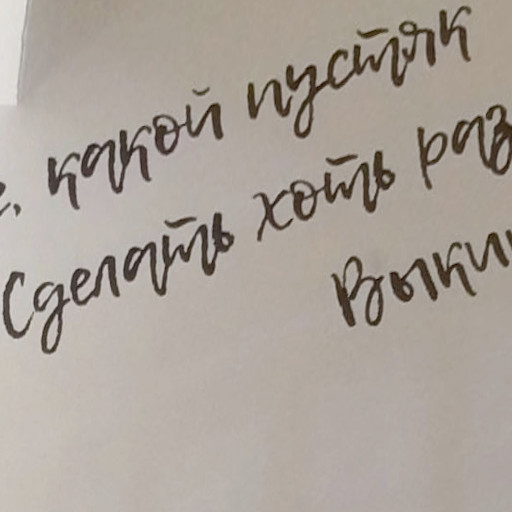 какой пустяк
Сделать хоть раз
Выки